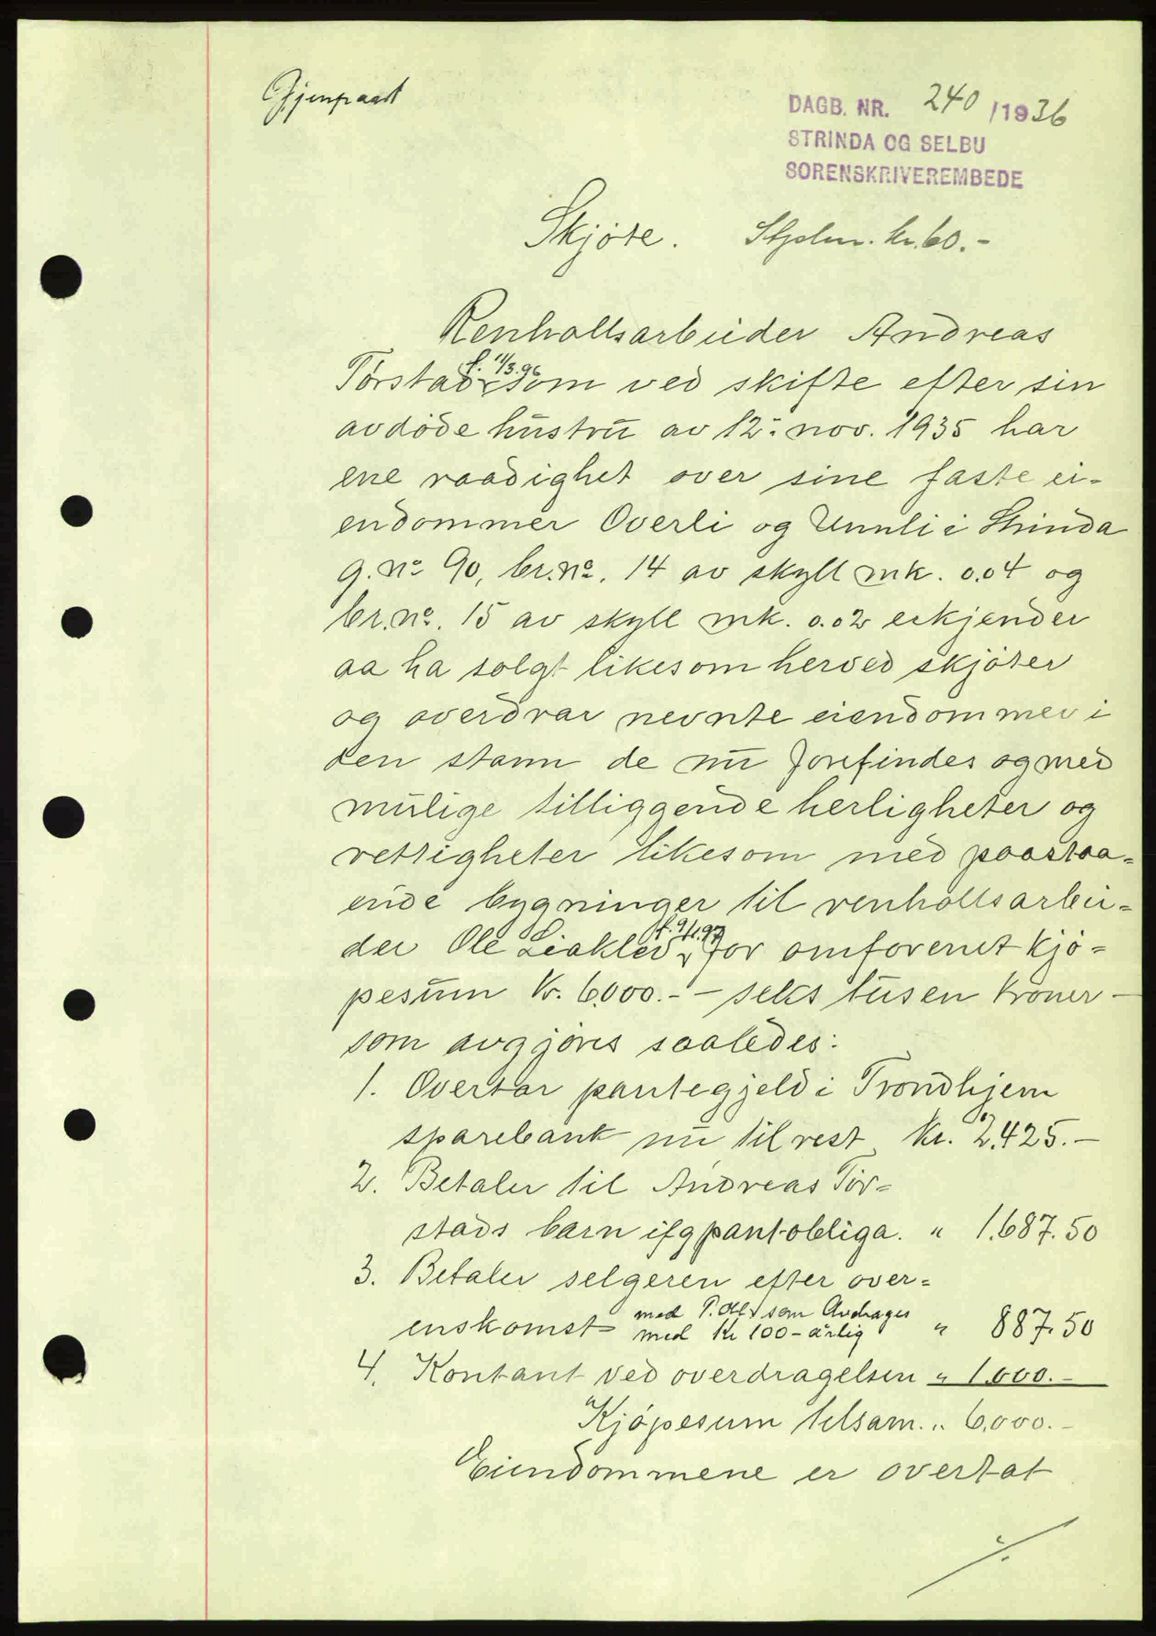 Gjenpart
DAGB. NR. 240/1936
STRINDA OG SELBU
SORENSKRIVEREMBEDE
Skjøte. Stplm. kr. 60.-
Renholdsarbeider Andreas
Tørstad f. 11/3.96 som ved skifte efter sin
avdøde hustru av 12. nov. 1935 har
ene raadighet over sine faste ei-
endommer Overli og Unnli i Strinda
g.no 90, br.no. 14 av skyll mk. 0.04 og
br.no. 15 av skyll mk. 0.02 erkjender
aa ha solgt likesom herved skjøter
og overdrar nevnte eiendommer i
den stann de nu forefindes og med
mulige tilliggende herligheter og
rettigheter likesom med paastaa-
ende bygninger til renholdsarbei-
der Ole Liaklev f. 9/1.97 for omforenet kjø-
pesum kr. 6000.- - seks tusen kroner -
som avgjøres saaledes:
1. Overtar pantegjeld i Trondhjem
sparebank nu til rest kr. 2.425.-
2. Betaler til Andreas Tør-
stads barn ifg pantobliga. " 1.687.50
3. Betaler selgeren efter over-
enskomst med P.Obl. som Avdrages
med kr 100- årlig " 887.50
4. Kontant ved overdragelsen " 1.000.-
Kjøpesum tilsam. " 6.000.-
Eiendommene er overtat
./.